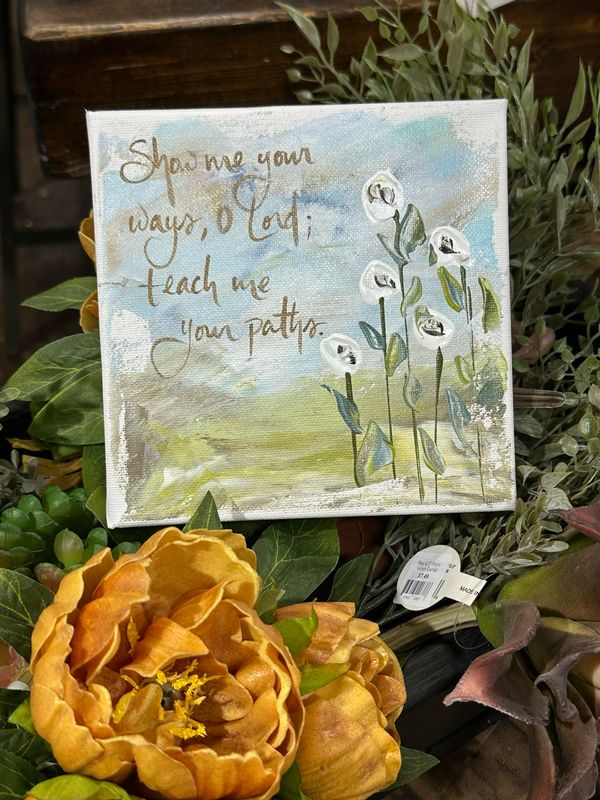 Show me your
ways, O Lord;
teach me
your paths.
$7.49
MADE